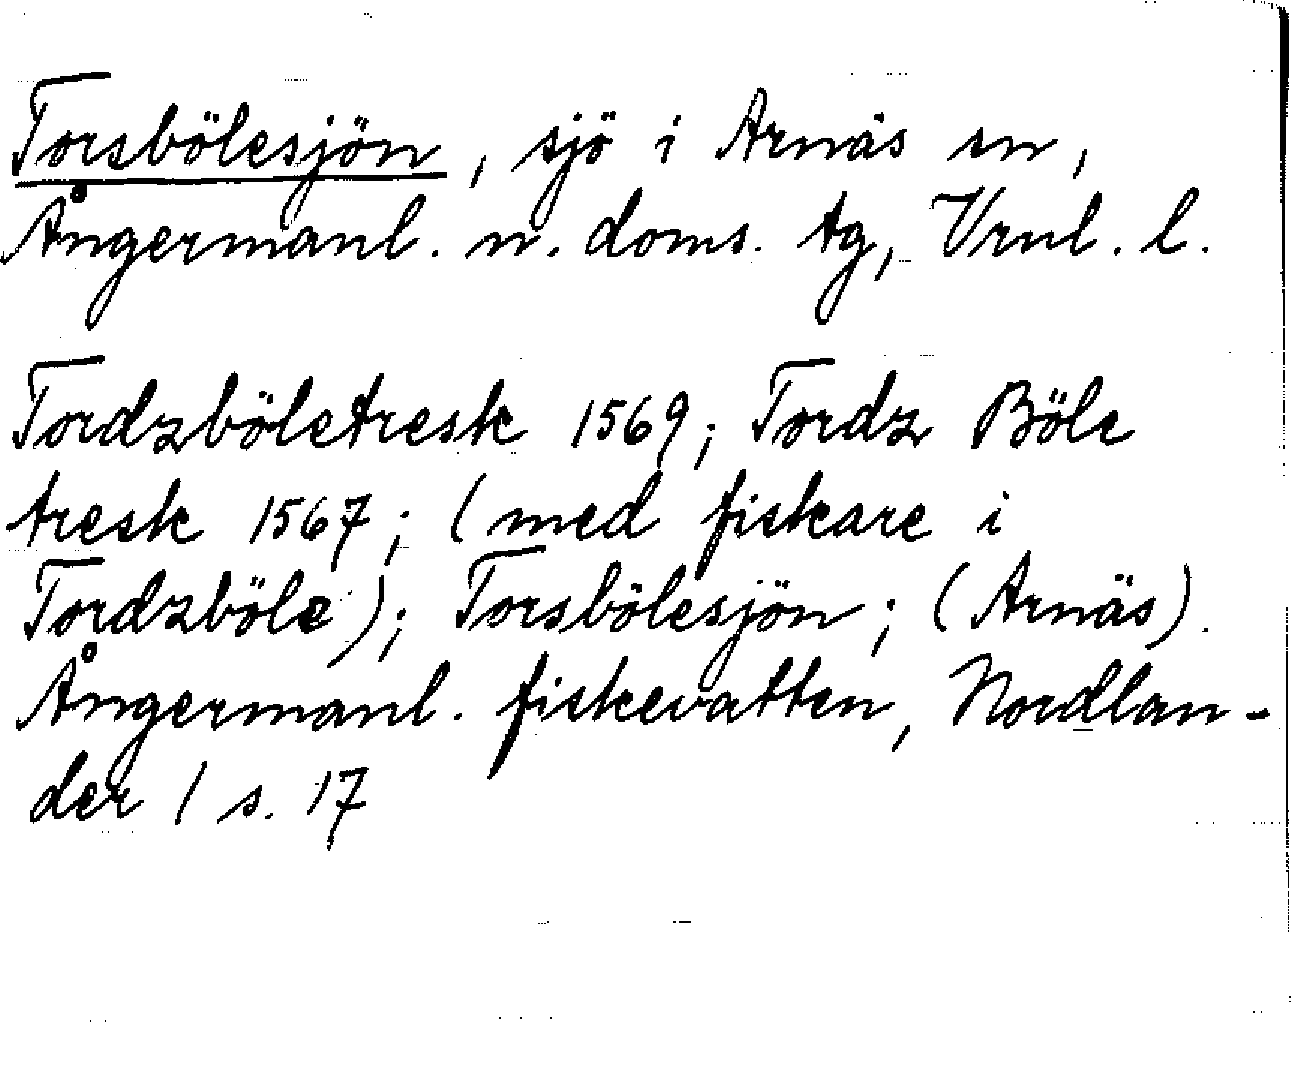 Torsbölesjön, sjö i Arnäs sn,
Ångermanl. n. doms. tg, Vrnl. l.
Tordzböletresk 1569; Tordz Böle
tresk 1567; (med fiskare i
Tordzböle); Torsbölesjön; (Arnäs).
Ångermanl. fiskevatten, Nordlan-
der 1 s. 17